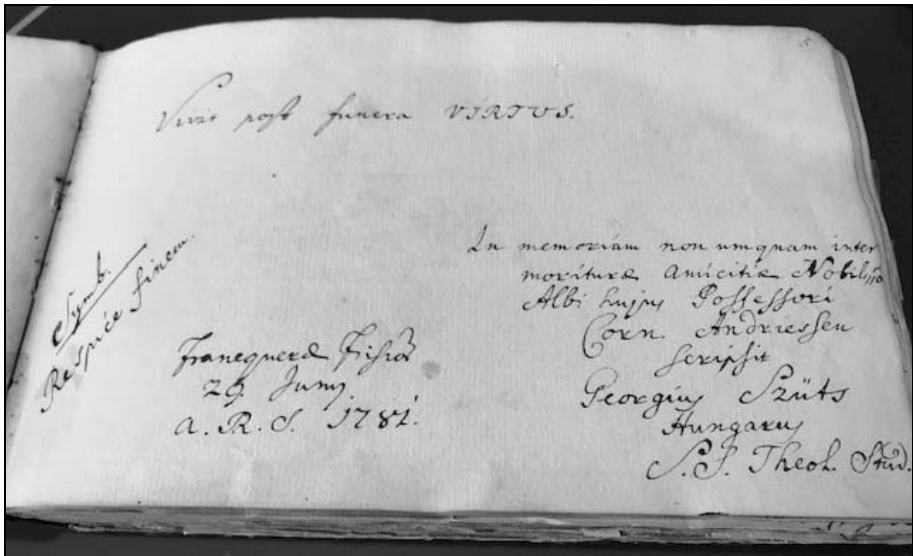 5
Vivit post funera VIRTUS.
Symb.
Respice finem.
Franequeræ Frisior
29. Junij
A. R. S. 1781.
In memoriam non umquam inter
morituræ amicitiæ Nobiliss̄o
Albi hujus Possessori
Corn. Andriessen
scripsit
Georgius Szüts
Hungarus
S. S. Theol. Stud.